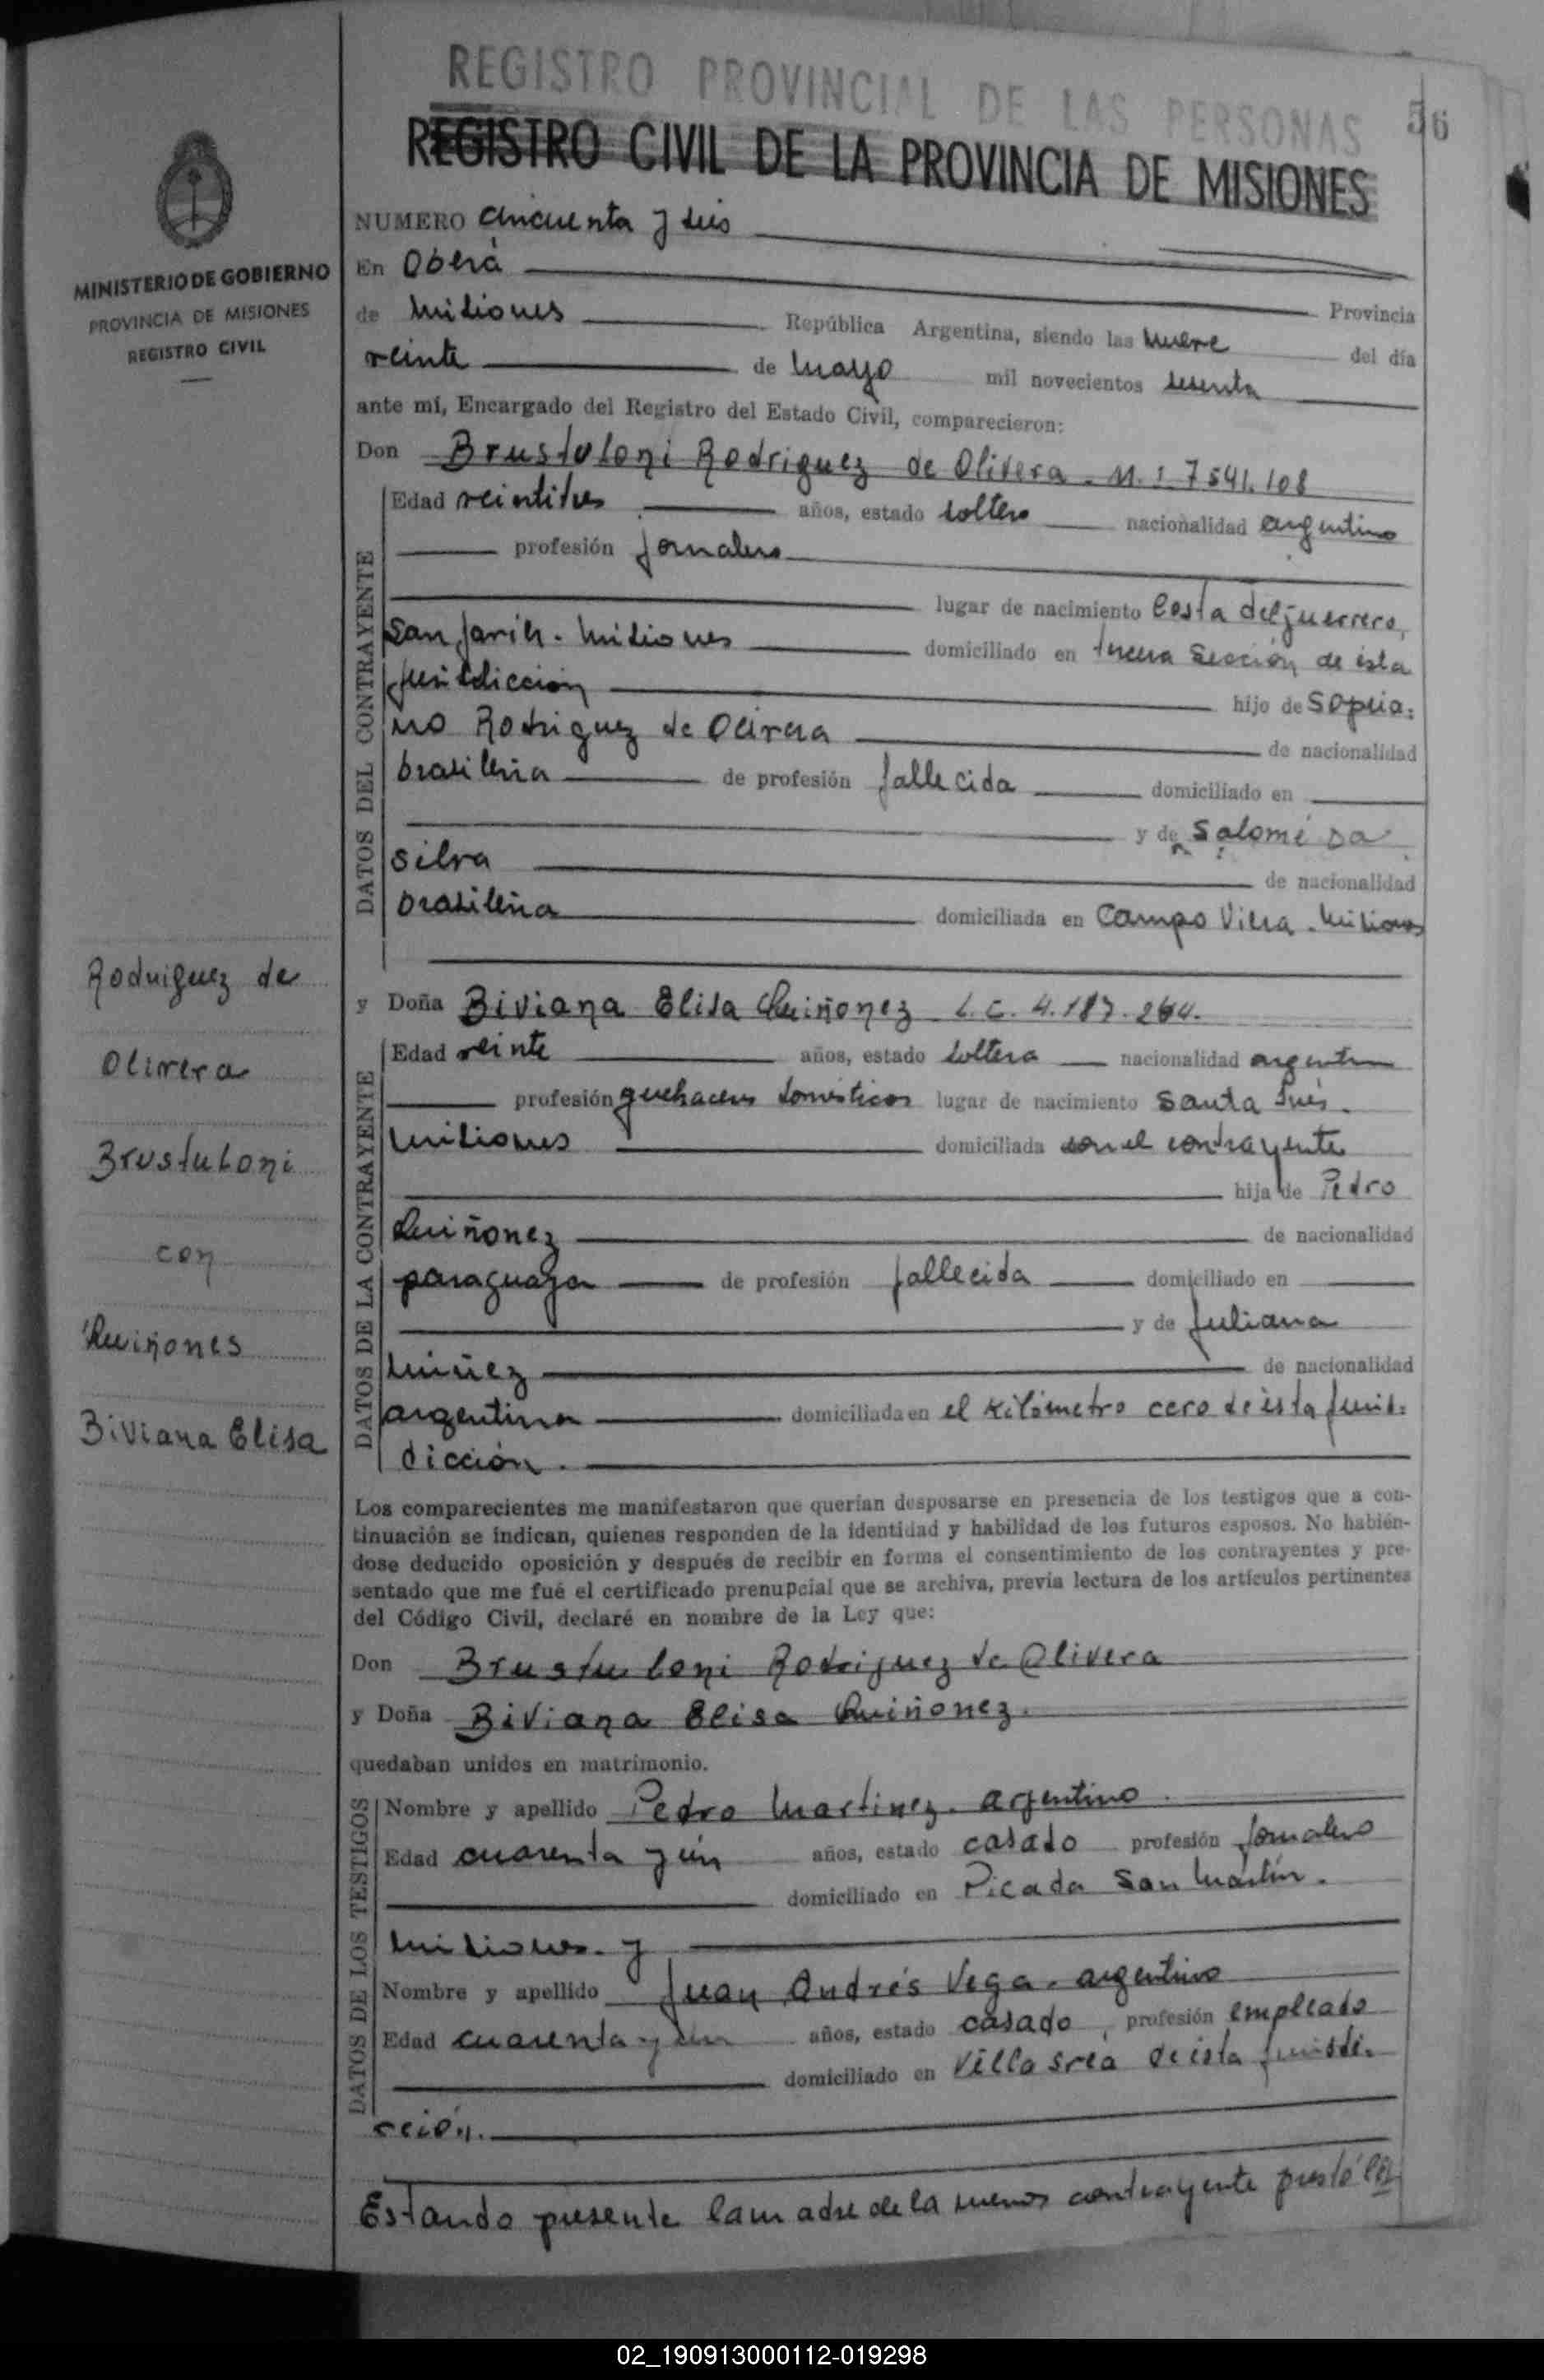 REGISTRO PROVINCIAL DE LAS PERSONAS
56
REGISTRO CIVIL DE LA PROVINCIA DE MISIONES
MINISTERIO DE GOBIERNO
PROVINCIA DE MISIONES
REGISTRO CIVIL
Rodriguez de
Olivera
Brustuloni
con
Quiñones
Biviana Elisa
NUMERO cincuenta y seis
En Oberá Provincia
de Misiones República Argentina, siendo las nueve del día
veinte de mayo mil novecientos sesenta
ante mí, Encargado del Registro del Estado Civil, comparecieron:
Don Brustuloni Rodriguez de Olivera - M. : 7541.108
DATOS DEL CONTRAYENTE
Edad veintitres años, estado soltero nacionalidad argentino
profesión jornalero
lugar de nacimiento Costa del guerrero,
San Javier - Misiones domiciliado en tercera Sección de ésta
jurisdicción hijo de Sopria:
no Rodriguez de Olivera de nacionalidad
brasileña de profesión fallecida domiciliado en
y de Salomé Da
Silva de nacionalidad
brasileña domiciliada en Campo Viera - Misiones
y Doña Biviana Elisa Quiñonez L.C. 4.187.264.
DATOS DE LA CONTRAYENTE
Edad veinte años, estado soltera nacionalidad argentina
profesión quehaceres domésticos lugar de nacimiento Santa Inés.
Misiones domiciliada con el contrayente
hija de Pedro
Quiñonez de nacionalidad
paraguaya de profesión fallecida domiciliado en
y de Juliana
Núñez de nacionalidad
argentina domiciliada en el Kilómetro cero de ésta juris:
dicción.
Los comparecientes me manifestaron que querían desposarse en presencia de los testigos que a con-
tinuación se indican, quienes responden de la identidad y habilidad de los futuros esposos. No habién-
dose deducido oposición y después de recibir en forma el consentimiento de los contrayentes y pre-
sentado que me fué el certificado prenupcial que se archiva, previa lectura de los artículos pertinentes
del Código Civil, declaré en nombre de la Ley que:
Don Brustuloni Rodriguez de Olivera
y Doña Biviana Elisa Quiñonez.
quedaban unidos en matrimonio.
DATOS DE LOS TESTIGOS
Nombre y apellido Pedro Martinez - argentino.
Edad cuarenta y ún años, estado casado profesión jornalero
domiciliado en Picada San Martín.
Misiones - y
Nombre y apellido Juan Andrés Vega - argentino
Edad cuarenta y un años, estado casado, profesión empleado
domiciliado en Villa de ésta jurisdi-
cción.
Estando presente la madre de la menor contrayente prestó
02_190913000112-019298